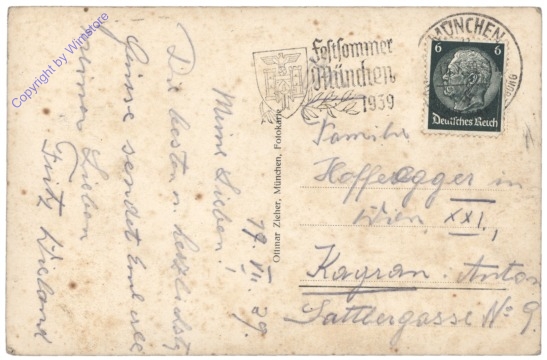 Meine Lieben!
17. VII. 39.
Die besten u. herzlichsten
Grüsse sendet Euch all
meine Lieben
Fritz Wieland
Ottmar Zieher, München, Fotokarte
Festsommer
München
1939
MÜNCHEN
6 6
Deutsches Reich
Familie
Hoffegger in
Wien XXI.,
Kagran. Anton
Sattlergasse No 9.
Copyright by Winstore